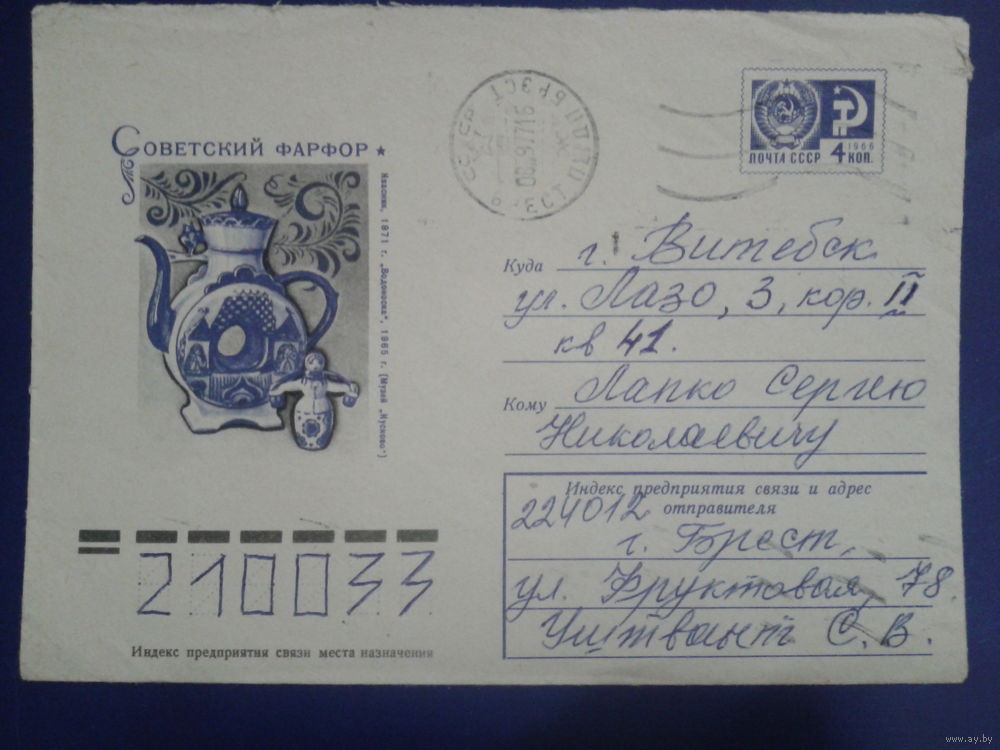 Советский фарфор ★
Квасник, 1971 г. „Водоноска", 1965 г. (Музей „Кусково")
СССР БРЭСТ ПДПП
ПОЧТА СССР 4 КОП.
1966
Куда г. Витебск
ул. Лазо, 3, кор. II
кв 41.
Кому Лапко Сергею
Николаевичу
Индекс предприятия связи и адрес
отправителя
224012
г. Брест,
ул. Фруктовая, 78.
С. В.
210033
Индекс предприятия связи места назначения
www.ay.by